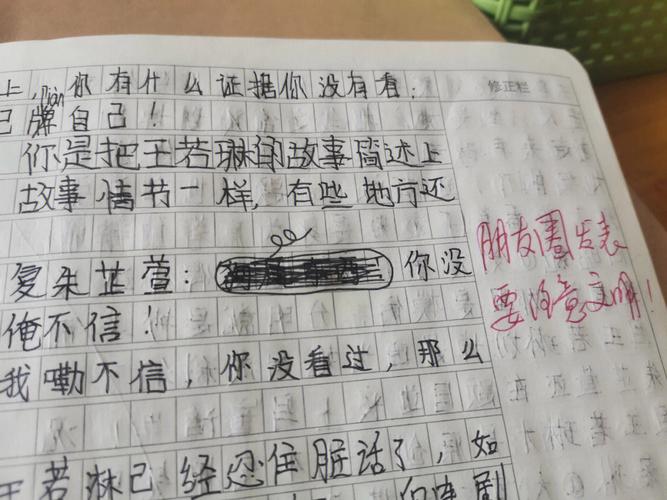 上，你有什么证据你没有看：
nián
己牌自己！
你是把王若琳的故事简述上
故事情节一样，有些地方还
复朱芷萱：你没
俺不信！
我嘞不信，你没看过，那么
王若淋己经忍住脏话了，如
修正栏
朋友圈发表
要注意文明！